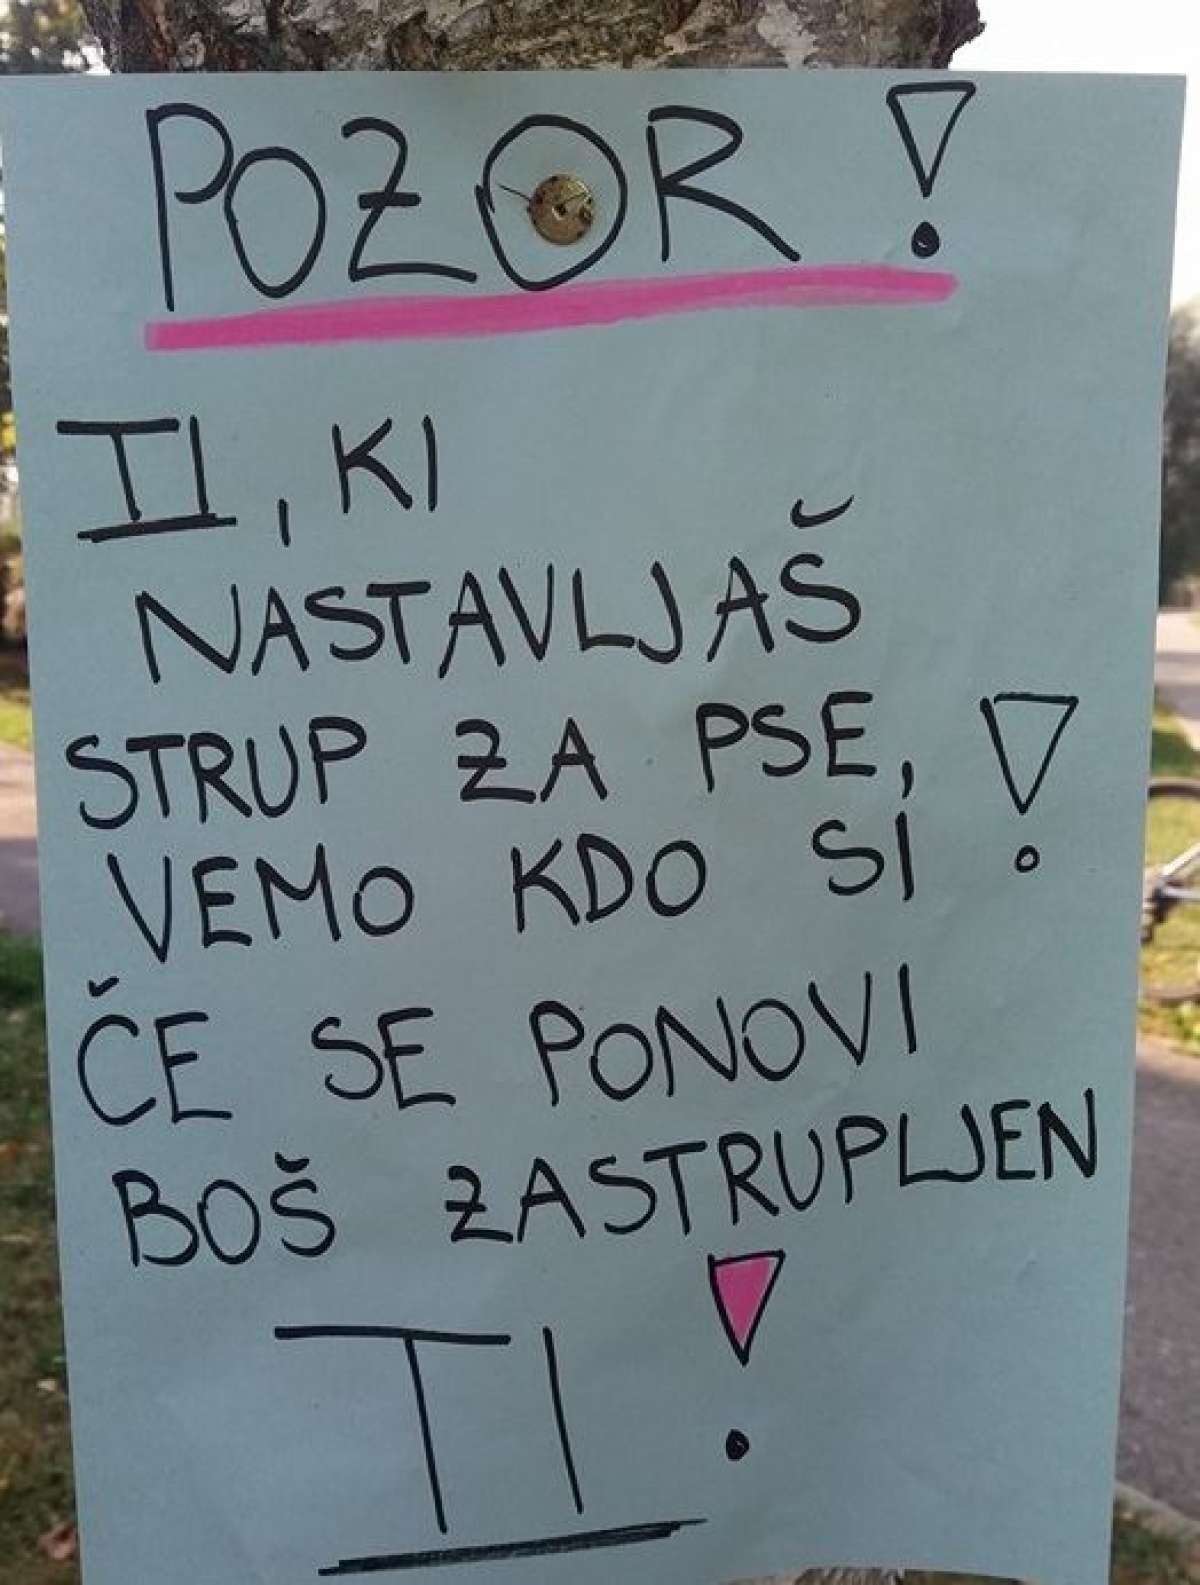 POZOR!
TI, KI
NASTAVLJAŠ
STRUP ZA PSE,
VEMO KDO SI!
ČE SE PONOVI
BOŠ ZASTRUPLJEN
TI!